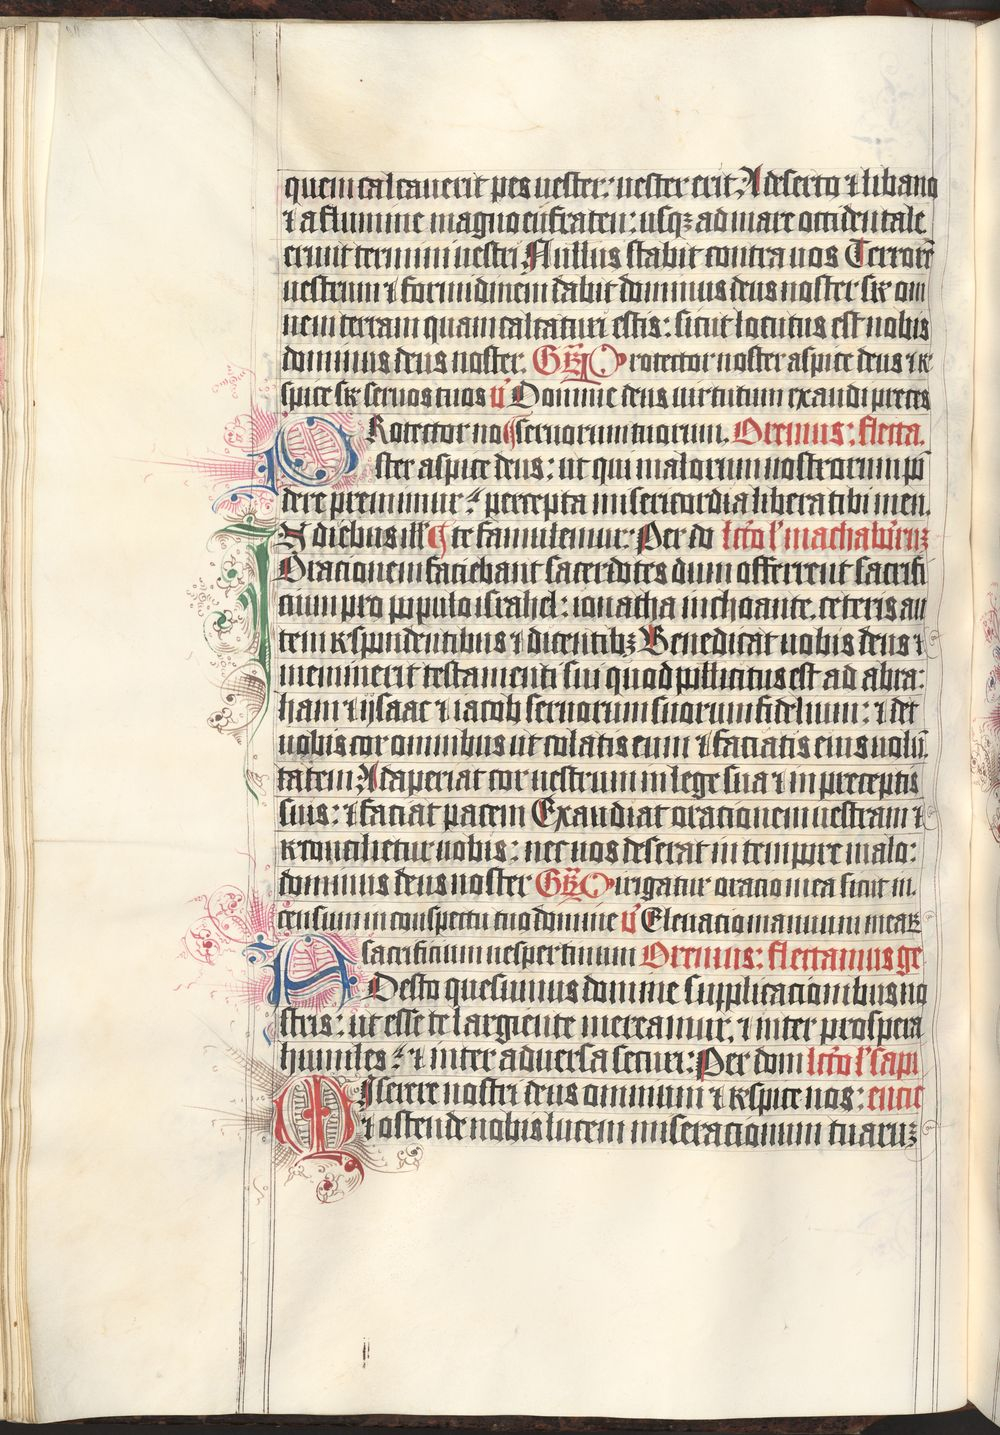 quem calcauerit pes uester: uester erit. A deserto ⁊ libano
⁊ a flumine magno eufraten: usqꝫ ad mare occidentale
erunt termini uestri. Nullus stabit contra uos Terrorē
uestrum ⁊ formidinem dabit dominus deus noster sr̄ om
nem terram quam calcaturi estis: sicut locutus est uobis
dominus deus noster. GR̄ Protector noster aspice deus ⁊ re
spice sr̄ seruos tuos v̄ Domine deus uirtutum exaudi preces
PRotector no ¶ seruorum tuorum. Oremus: flecta.
ster aspice deus: ut qui malorum nostrorum pō
dere premimur: percepta misericordia libera tibi men.
IN diebus ill̄ ¶ te famulemur: Per do lcō l' machabeorꝝ
Oracionem faciebant sacerdotes dum offerrent sacrifi
cium pro populo israhel: ionatha inchoante, ceteris au
tem respondentibus ⁊ dicentibꝫ Benedicat uobis deus ⁊
meminerit testamenti sui quod pollicitus est ad abra:
ham ⁊ ysaac ⁊ iacob seruorum suorum fidelium: ⁊ det
uobis cor omnibus ut colatis eum ⁊ faciatis eius uolū.
tatem: Adaperiat cor uestrum in lege sua ⁊ in preceptis
suis: ⁊ faciat pacem Exaudiat oracionem uestram ⁊
reconcilietur uobis: nec uos deserat in tempore malo:
dominus deus noster GR̄ Dirigatur oracio mea sicut in.
censum in conspectu tuo domine v̄ Eleuacio manuum mearꝝ
sacrificium uespertinum Oremus: flectamus ge
ADesto quesumus domine supplicacionibus no
stris: ut esse te largiente mereamur, ⁊ inter prospera
humiles: ⁊ inter aduersa securi: Per dom lcō l' sapi
MIserere nostri deus omnium ⁊ respice nos: encie
⁊ ostende nobis lucem miseracionum tuarꝝ